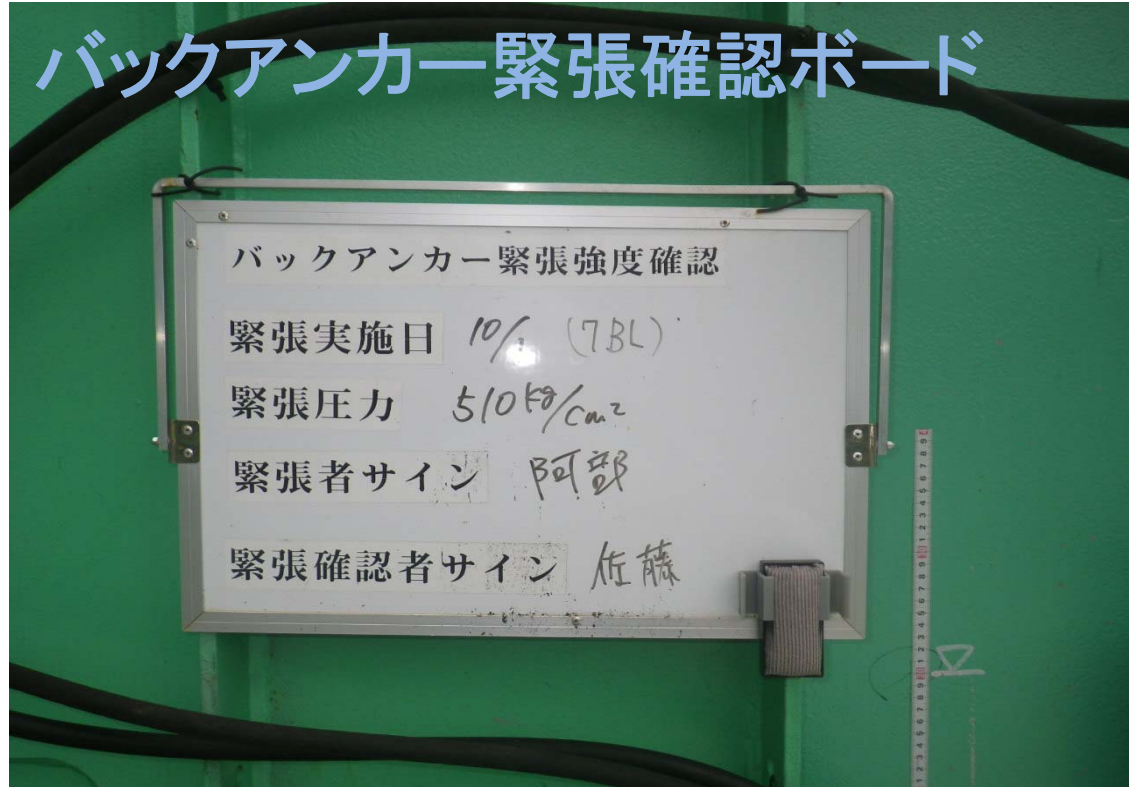 バックアンカー緊張確認ボード
バックアンカー緊張強度確認
緊張実施日 10/ (7BL)
緊張圧力 510kg/cm²
緊張者サイン 阿部
緊張確認者サイン 佐藤